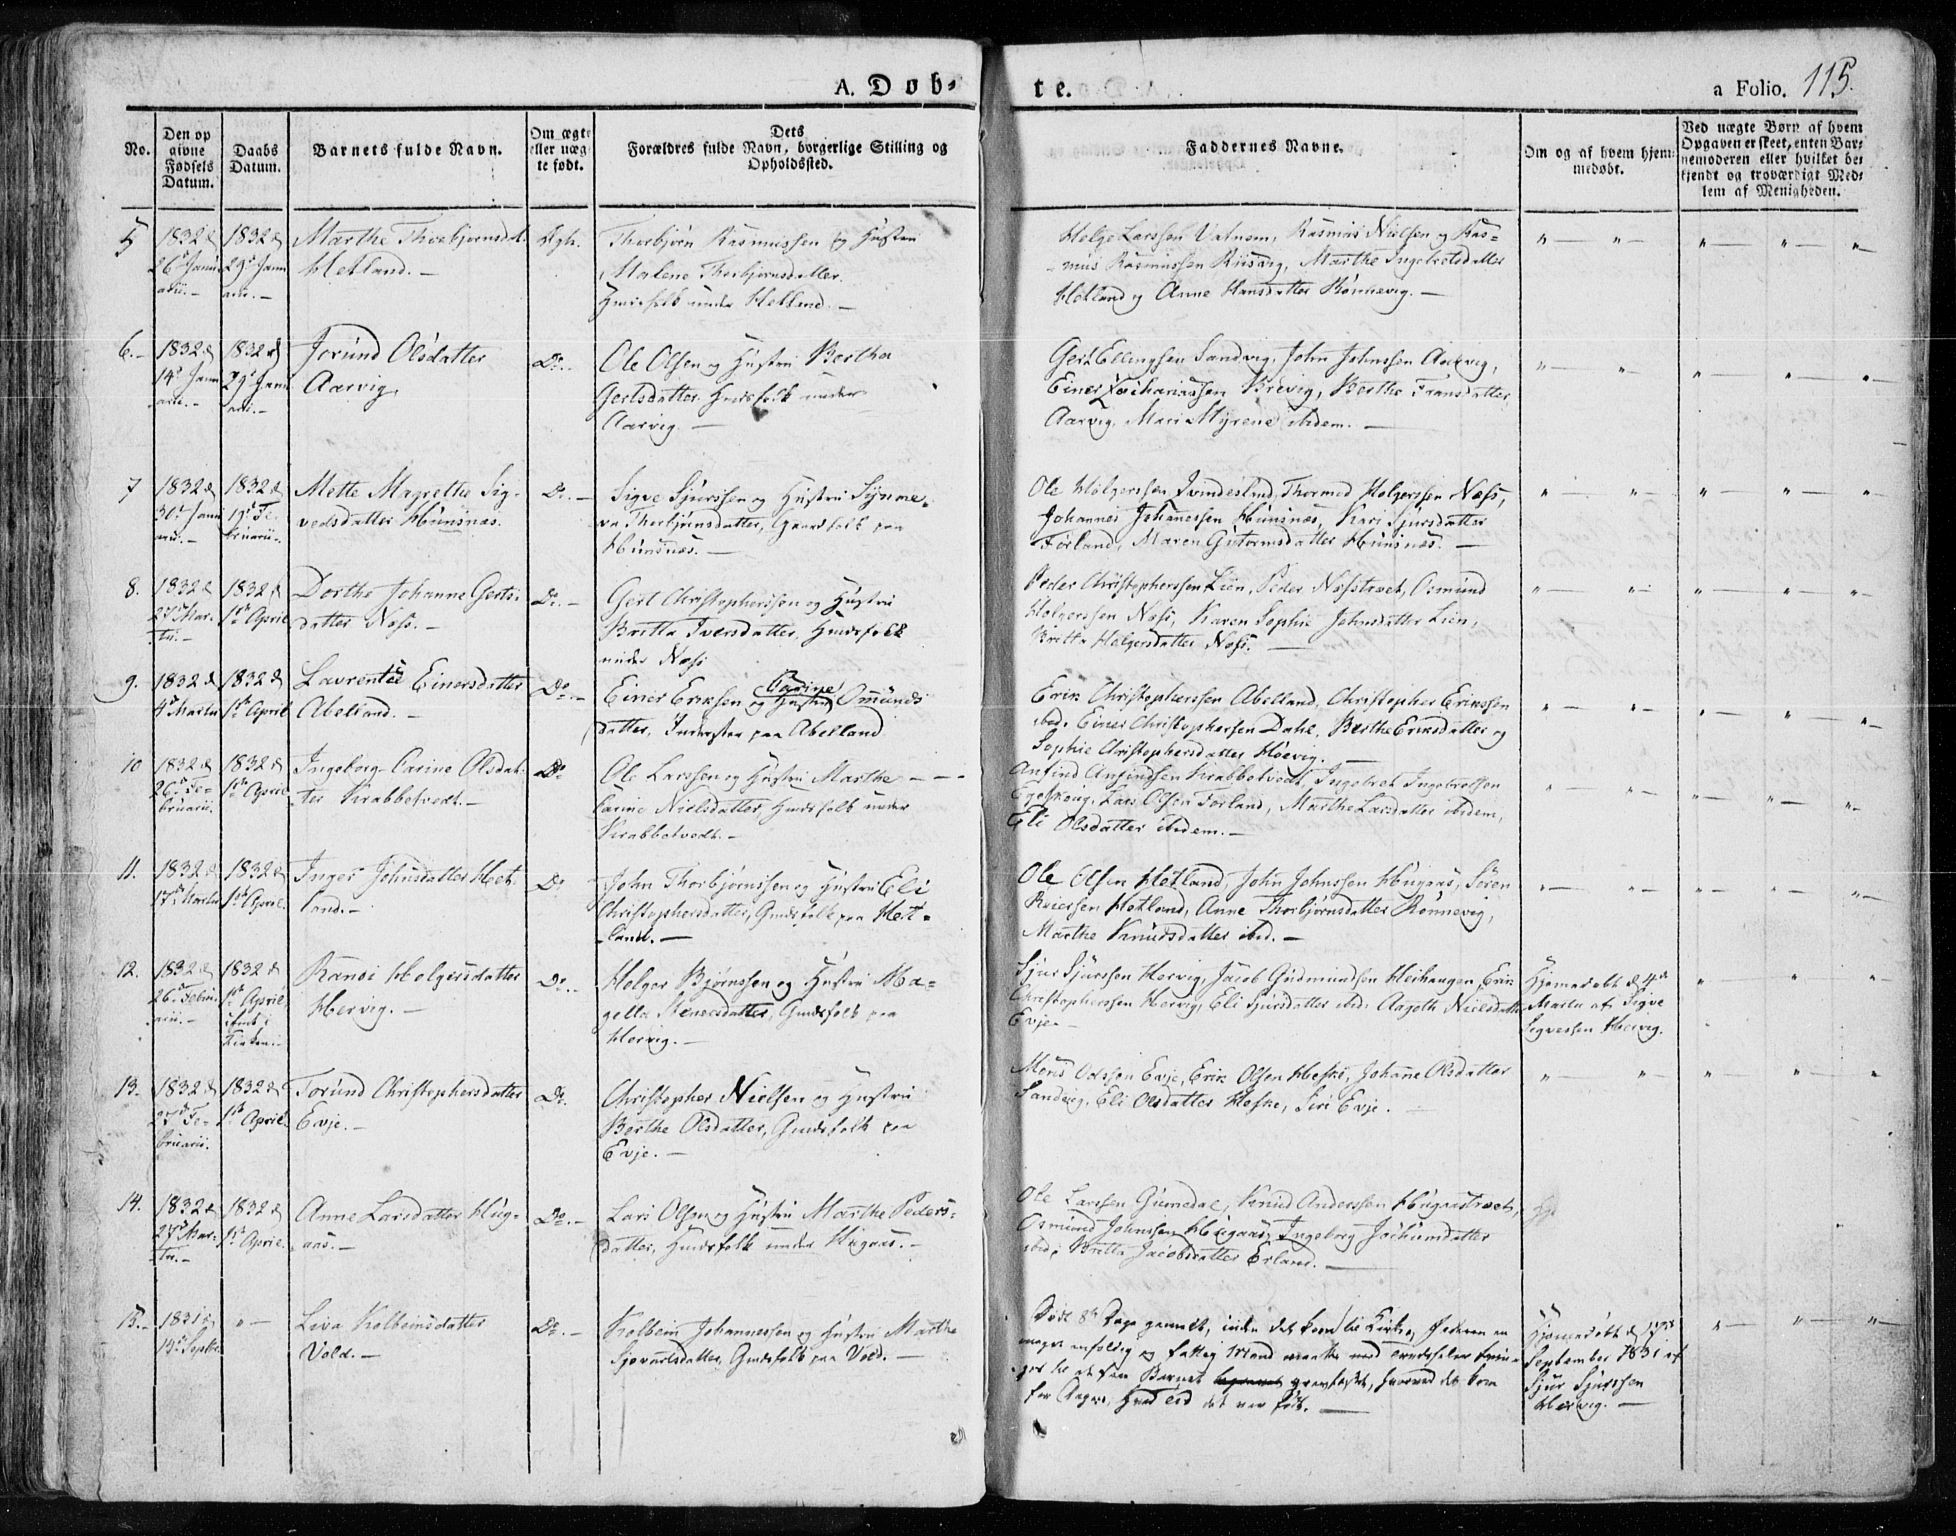 A. Døb-
te.
a Folio. 115.
No.
Den opgivne Fødsels Datum.
Daabs Datum.
Barnets fulde Navn.
Om ægte eller uægte født.
Dets Forældres fulde Navn, borgerlige Stilling og Opholdssted.
Faddernes Navne.
Om og af hvem hjemmedøbt.
Ved uægte Børn af hvem Opgaven er skeet, enten Barnemoderen eller hvilket bekjendt og troværdigt Medlem af Menigheden.
5
1832 d
26d Janu
arii.
1832 d
29d Janu
arii.
Marthe Thorbjørnsd.
Hetland.
Ægte.
Thorbjørn Rasmussen og Hustru
Malene Thorbjørnsdatter.
Huusfolk under Hetland.
Helge Larssen Vatnem, Rasmus Nielsen og Ras-
mus Rasmussen Riisvig, Marthe Ingebretsdatter
Hetland og Anne Hansdatter Rønnevig.
6.
1832 d
14d Janu
arii.
1832 d
29d Janu
arii.
Jorund Olsdatter
Aarvig.
Do.
Ole Olsen og Hustru Bertha
Gertsdatter. Huusfolk under
Aarvig.
Gert Ellingsen Sandvig, John Johnssen Aarvig,
Einer Zachariassen Brevig, Berthe Fransdatter
Aarvig, Mari Myrene ibidem.
7
1832 d
30d Janu
arii.
1832 d
19d Fe-
bruarii.
Mette Magrethe Sig-
vedsdatter Hunsnæs.
Do.
Sigve Sjurssen og Hustru Synne-
va Thorbjørnsdatter, Gaardfolk paa
Hunsnæs.
Ole Holgerssen Qvindesland, Thormod Holgerssen Næss,
Johannes Johanessen Hunsnæs, Kari Sjursdatter
Førland, Maren Gutormsdatter Hunsnæs.
8.
1832 d
27d Mar-
tii.
1832 d
1ste April
Dorthe Johanne Gerts-
datter Næss.
Do.
Gert Christopherssen og Hustru
Britta Iversdatter, Huusfolk
under Næss
Peder Christopherssen Lien, Peder Næsstræet, Osmund
Holgerssen Næss, Karen Sophie Johnsdatter Lien,
Britta Holgersdatter Næss.
9.
1832 d
4d Martii
1832 d
1ste April
Laurentze Einersdatter
Abeland.
Do.
Einer Eriksen og Hustru Carine Omunds
datter, Inderster paa Abelland
Erik Christopherssen Abelland, Christopher Erikssen
ibd. Einer Christophersen Dahle, Berthe Eriksdatter og
Sophie Christophersdatter Høevig.
10
1832 d
26d Fe-
bruarii.
1832 d
1ste April
Ingeborg Carine Olsdat-
ter Krabbetvedt.
Do
Ole Larssen og Hustru Marthe
Carine Nielsdatter, Huusfolk under
Krabbetvedt.
Anfind Anfindsen Krabbetvedt, Ingebret Ingebretsen
Egeskoug, Lars Olsen Førland, Marthe Larsdatter ibidem,
Eli Olsdatter ibidem.
11.
1832 d
17d Martii
1832 d
1ste April.
Inger Johnsdatter Het-
land.
Do
John Thorbjørnssen og Hustru Eli
Christophersdatter, Gaardfolk paa Het-
land.
Ole Olsen Hetland, John Johnssen Hugaas, Søren
Reiersen Hetland, Anne Thorbjørnsdatter Rønnevig,
Marthe Knudsdatter ibd.
12.
1832 d
26d Febru
arii.
1832 d
1ste April
indf. i
Kirken.
Rannei Holgersdatter
Hervig.
Do.
Holger Bjørnssen og Hustru Ma-
gella Steneesdatter, Gaardfolk paa
Hervig.
Sjur Sjurssen Hervig, Jacob Gudmundsen Heihaugen, Erik
Christopherssen Hervig, Eli Sjursdatter ibd. Aageth Nielsdatter
Evje.
Hjemmedøbt d 4de
Martii af Sigve
Sigvessen Hervig.
13.
1832 d
25d Fe-
bruarii.
1832 d
1ste April.
Torund Christophersdatter
Evje.
Do.
Christopher Nielsen og Hustru
Berthe Olsdatter, Gaardfolk paa
Evje.
Mons Olssen Evje, Erik Olsen Heske, Johanne Olsdatter
Sandvig, Eli Olsdatter Heske, Siri Evje.
14.
1832 d
27d Mar-
tii.
1832 d
1ste April.
Anne Larsdatter Hug-
aas.
Do.
Lars Olsen og Hustru Marthe Peders-
datter, Huusfolk under Hugaas.
Ole Larssen Gumedal, Knud Anderssen Hugaastræet,
Osmund Johnssen Hugaas, Ingeborg Jochumdatter
ibd., Britta Jacobsdatter Erland.
Hj
15.
1831 d
14d Septbr
Liva Kolbeinsdatter
Vold.
Do.
Kolbein Johannessen og Hustru Marthe
Sjovarsdatter, Gaardfolk paa Vold.
Døde 8te Dage gammelt, inden det kom til Kirke, Faderen en
meget enfoldig og fattig Mand maatte med Trudsler tvin-
ges til at faae Barnet jordfæstet, hvorved det kom
for Dagen, hvad Tid det var født.
Hjemmedøbt d 17de
September 1831 af
Sjur Sjurssen
Hervig.